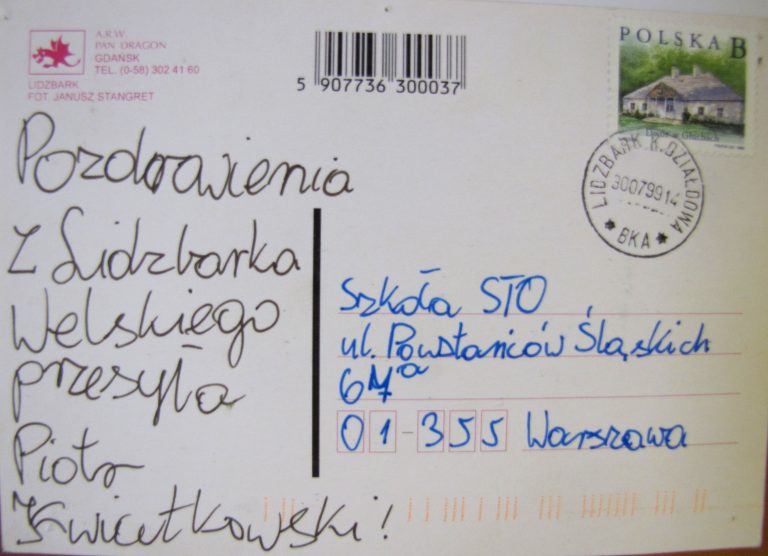 A.R.W.
PAN DRAGON
GDAŃSK
TEL. (0-58) 302 41 60
LIDZBARK
FOT. JANUSZ STANGRET
5 907736 300037
POLSKA B
LIDZBARK K.DZIAŁDOWA
300799 14
* BKA *
Pozdrowienia
z Lidzbarka
Welskiego
przesyła
Piotr
Kwiatkowski!
Szkoła STO
ul. Powstańców Śląskich
67a
01-355 Warszawa